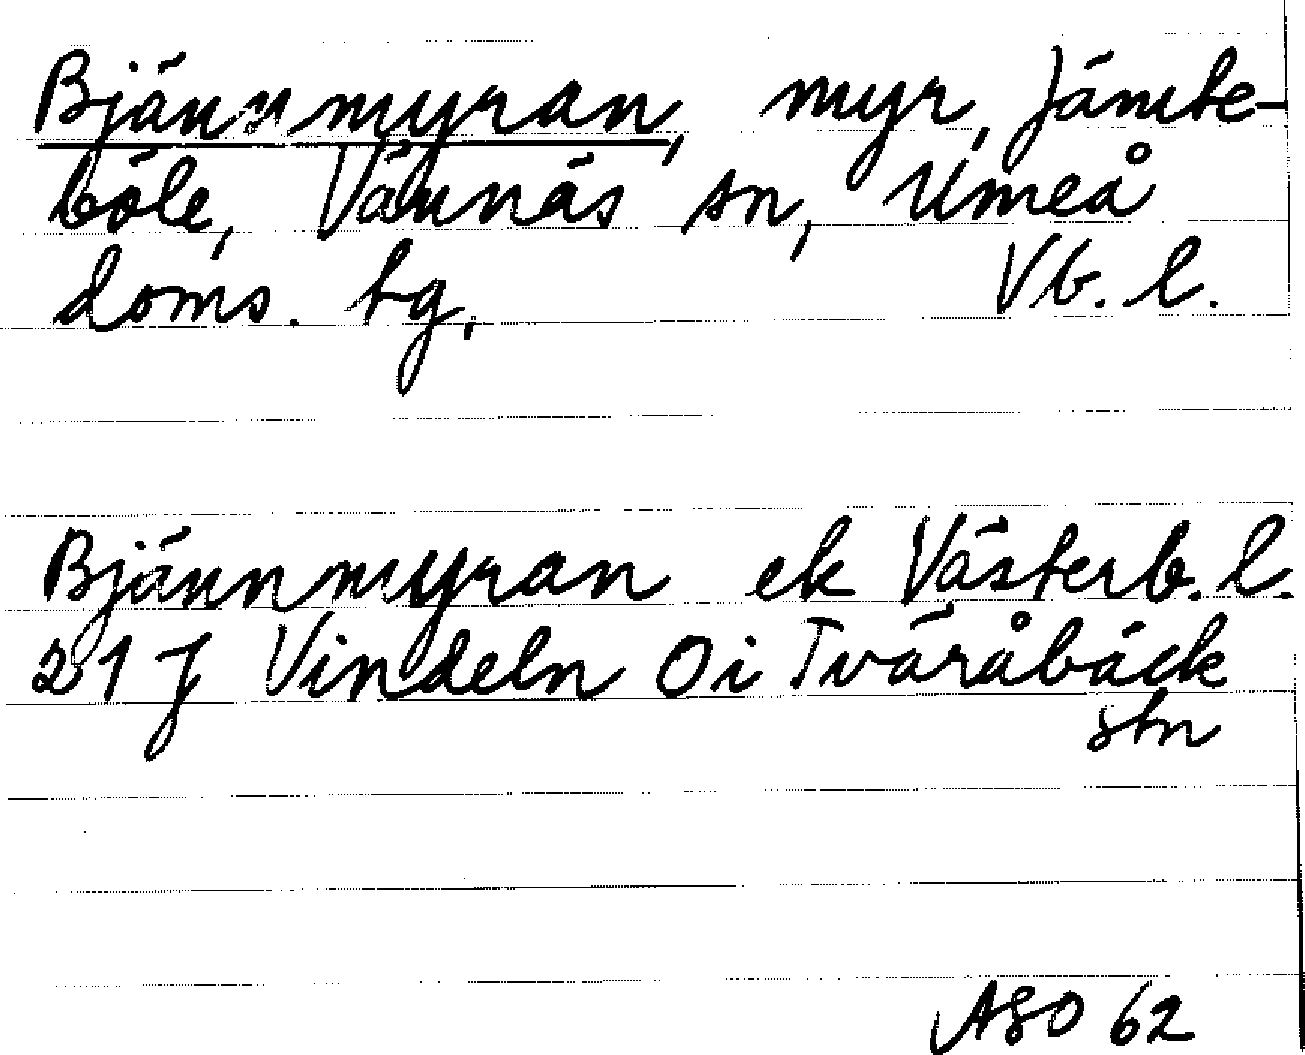 Bjännmyran, myr, Jämte-
böle, Vännäs sn, Umeå
doms. tg, Vb. l.
Bjännmyran ek Västerb. l.
21 J Vindeln Oi Tväråbäck
stn
ASO 62